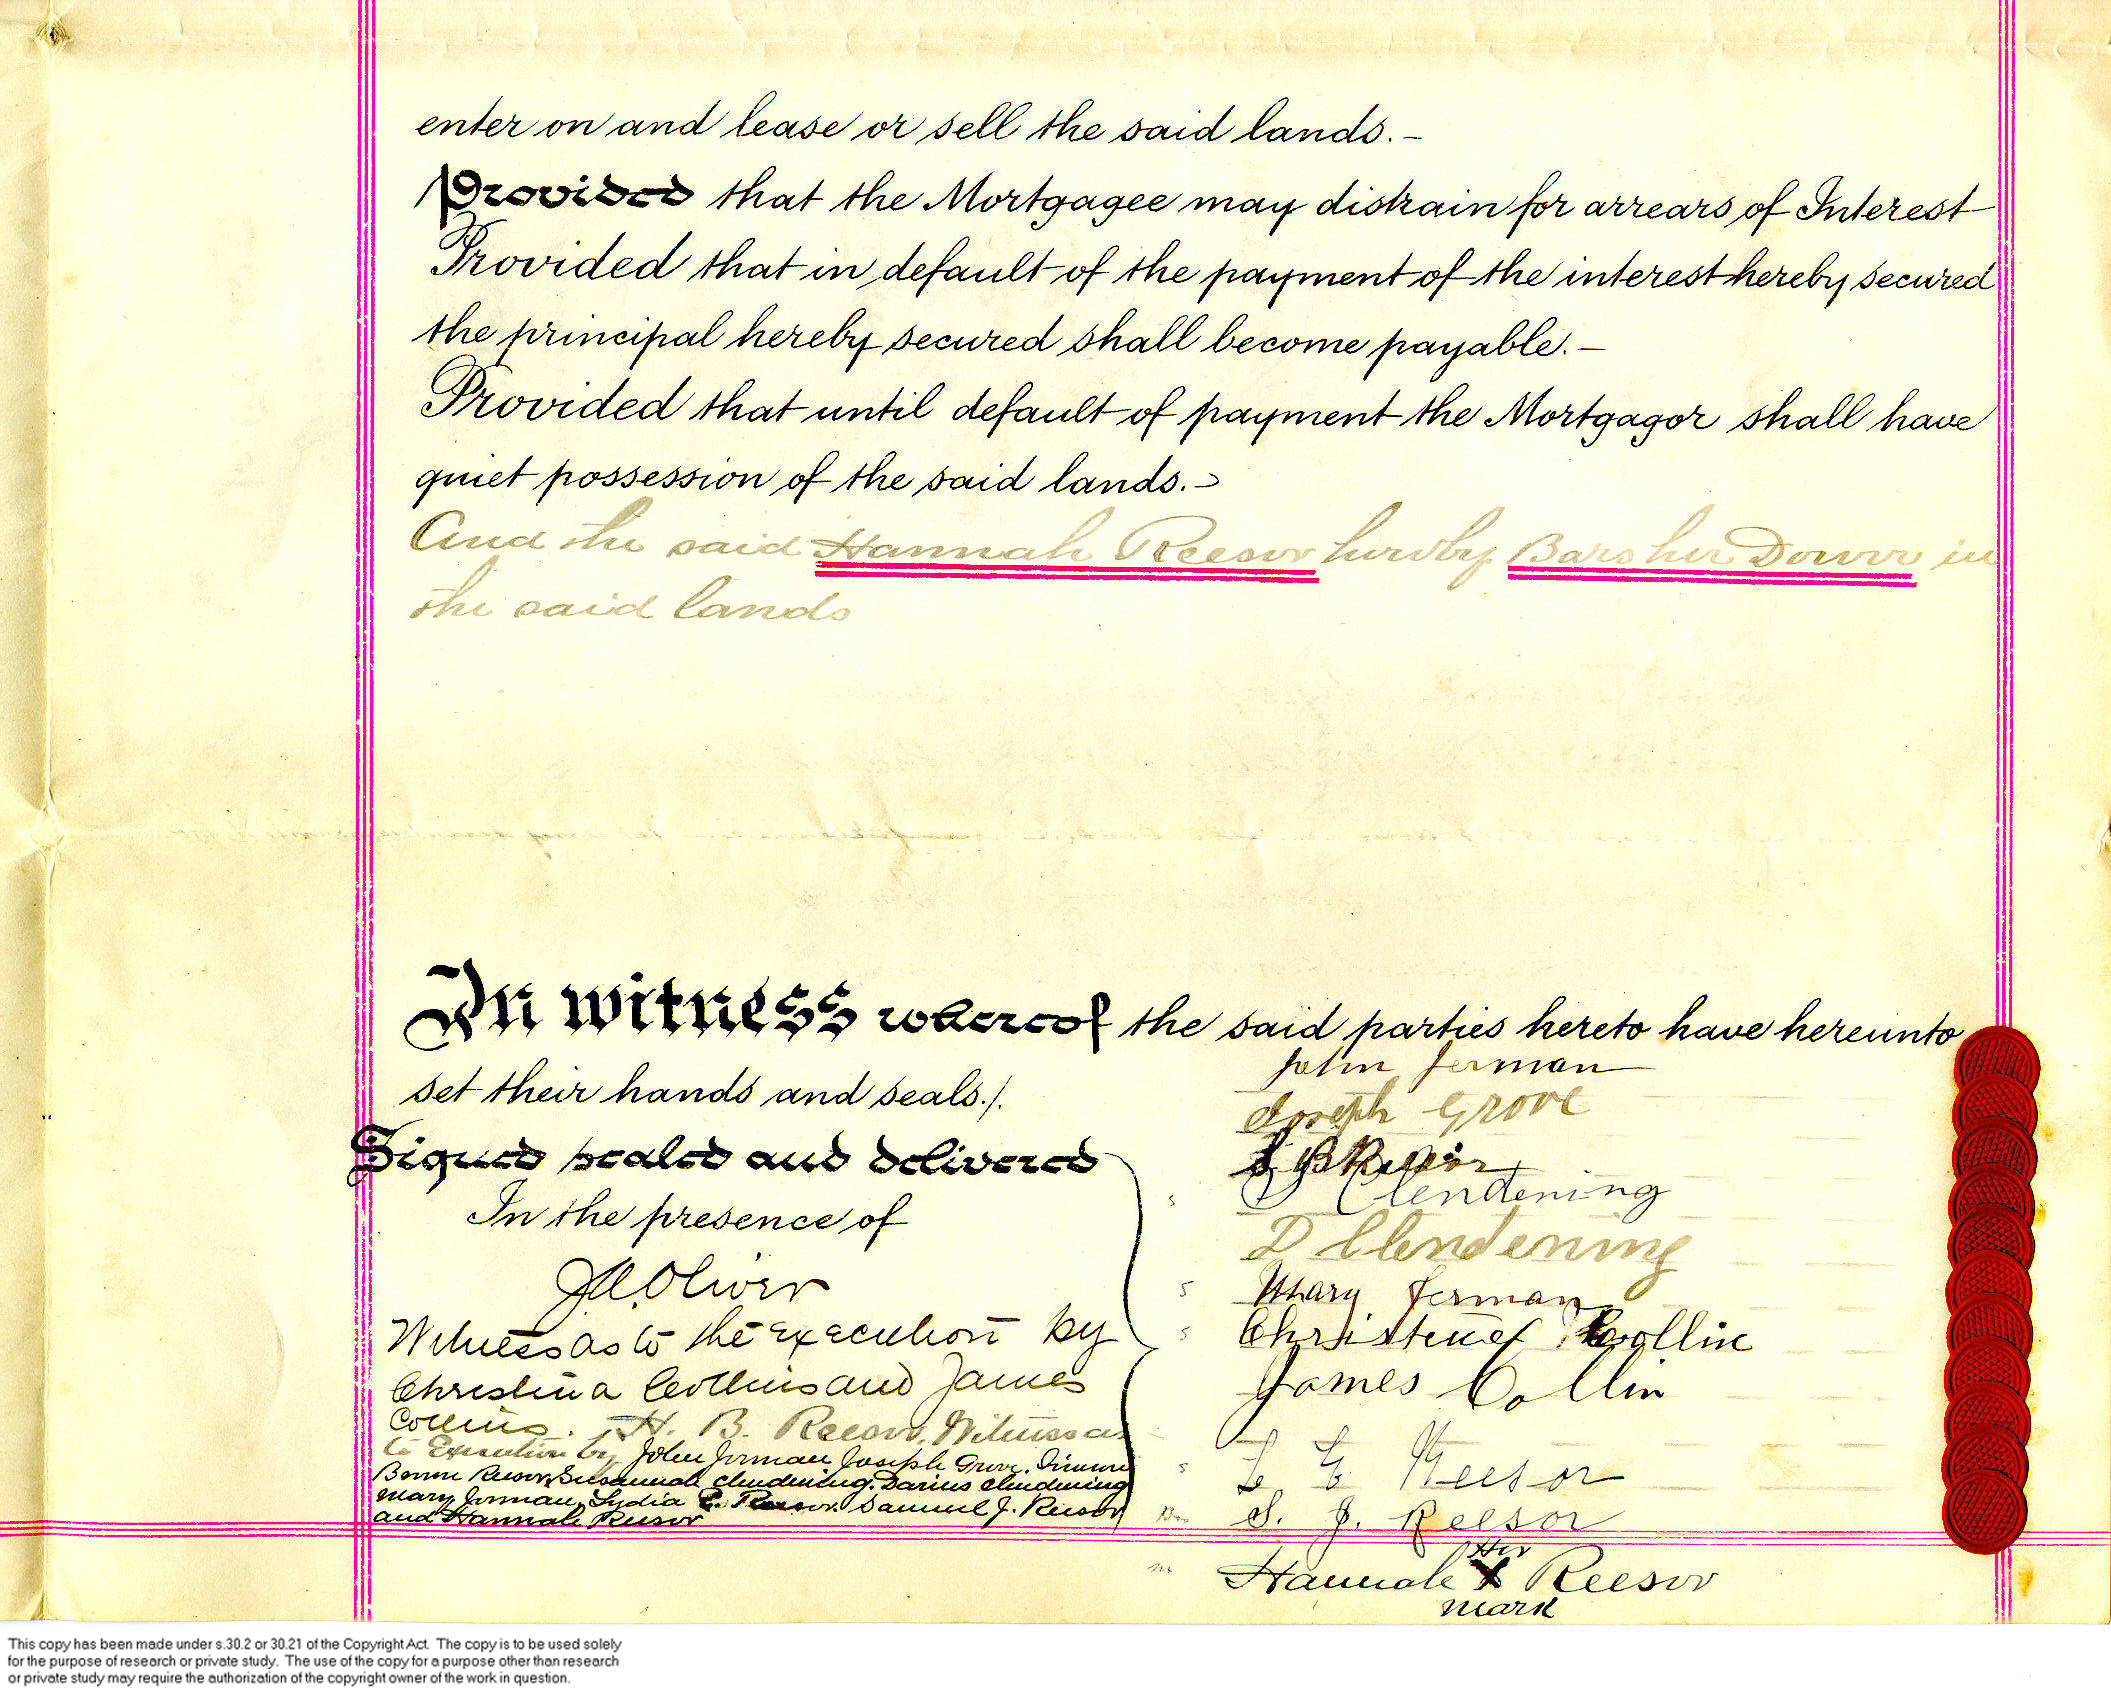 enter on and lease or sell the said lands.—
Provided that the Mortgagee may distrain for arrears of Interest
Provided that in default of the payment of the interest hereby secured
the principal hereby secured shall become payable.—
Provided that until default of payment the Mortgagor shall have
quiet possession of the said lands.—
And the said Hannah Reesor hereby Bars her Dower in
the said lands
In witness whereof the said parties hereto have hereunto
set their hands and seals./.
Signed sealed and delivered
In the presence of
J.A. Oliver
Witness as to the execution by
Christina Collins and James
Collins. H. B. Reesor, Witness as
to Execution by John Jerman Joseph Grove. Simeon
Reesor, Susannah Clendening, Darius Clendening
Mary Jerman, Lydia E. Reesor. Samuel J. Reesor
and Hannah Reesor
John Jerman
Joseph Grove
S B Reesor
S Clendening
D Clendening
Mary Jerman
Christine Collin
James Collin
L E Reesor
S. J. Reesor
Her
Hannah X Reesor
mark
This copy has been made under s.30.2 or 30.21 of the Copyright Act. The copy is to be used solely
for the purpose of research or private study. The use of the copy for a purpose other than research
or private study may require the authorization of the copyright owner of the work in question.